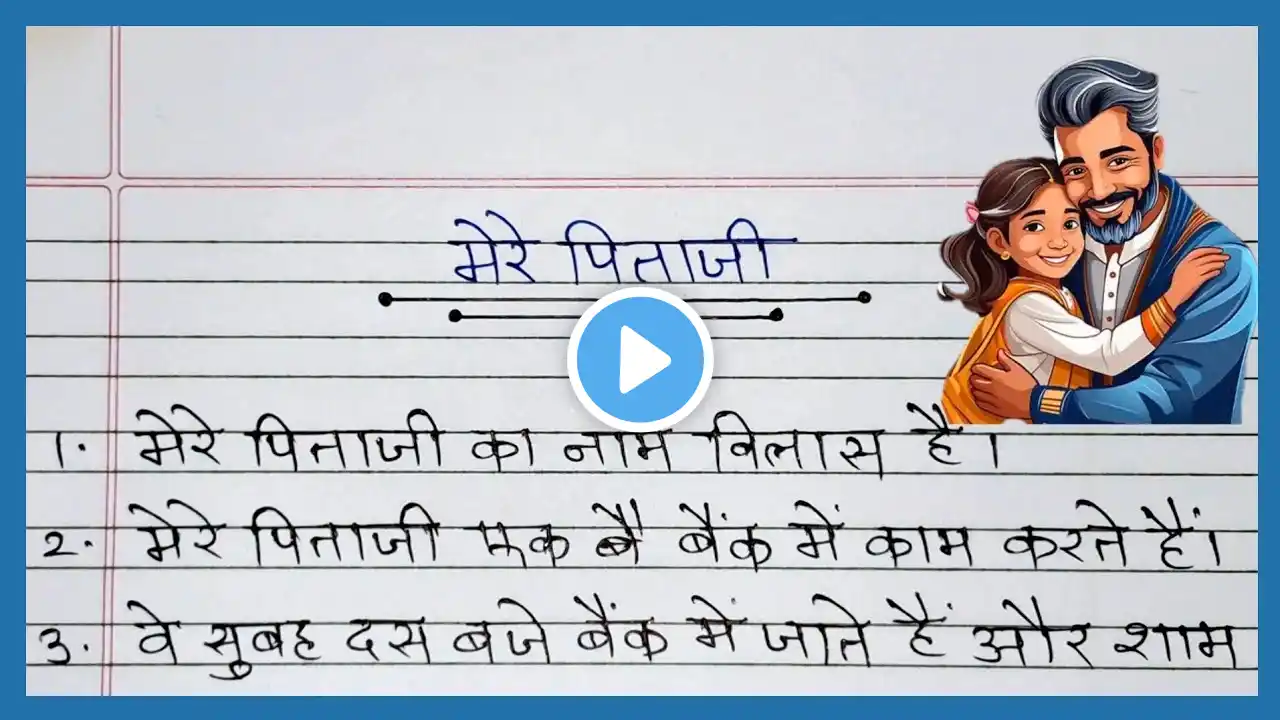 मेरे पिताजी
1. मेरे पिताजी का नाम विलास है।
2. मेरे पिताजी एक बै बैंक में काम करते हैं।
3. वे सुबह दस बजे बैंक में जाते हैं और शाम